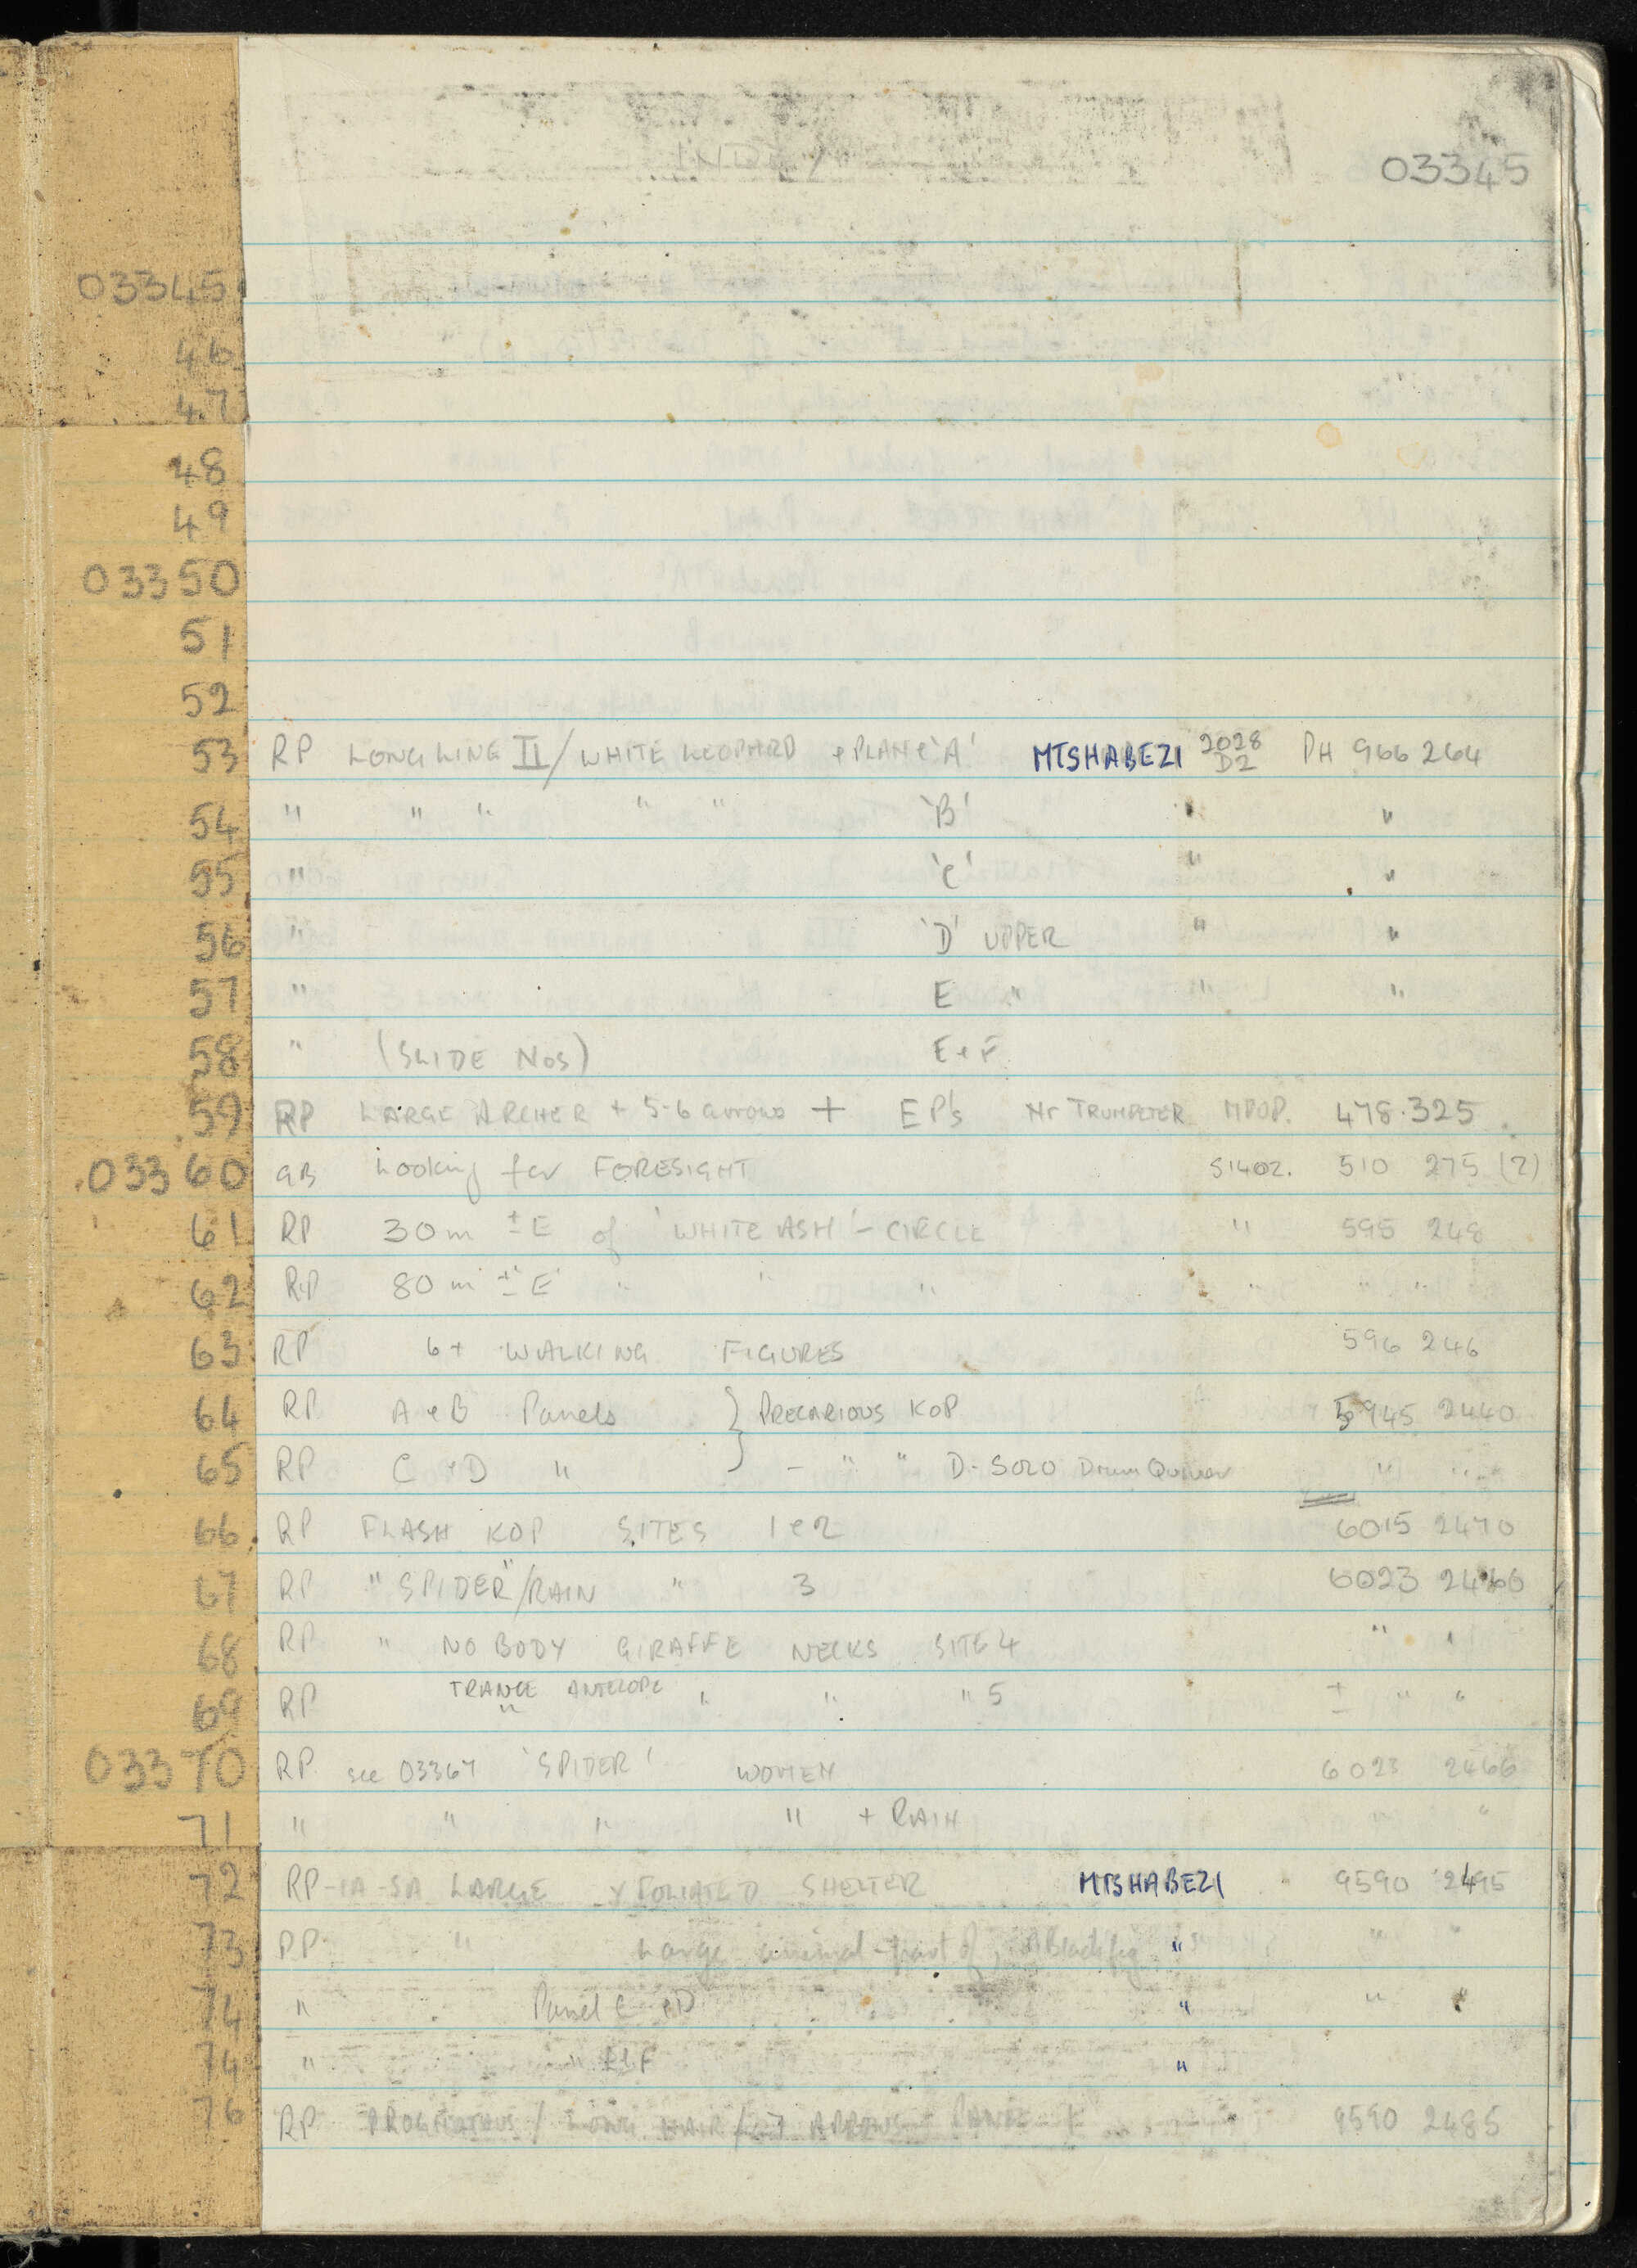 INDEX
03345
03345
46
47
48
49
03350
51
52
53 RP LONG WING II / WHITE LEOPARD + PLAN + 'A' MTSHABEZI 2028 D2 PH 966 264
54 " " " " " 'B' " "
55 " 'C' " "
56 " 'D' UPPER " "
57 " E " " "
58 " (SLIDE NOS) E + F
59 RP LARGE ARCHER + 5-6 arrows + EP's Nr TRUMPETER MPOP. 478.325
03360 GB Looking for FORESIGHT SILOZ. 510 275 (2)
61 RP 30m ± E of 'WHITE ASH' - CIRCLE " 595 248
62 RP 80m ± E " " " " " "
63 RP 6+ WALKING FIGURES 596 246
64 RP A + B Panels } PRECARIOUS KOP 5945 2440
65 RP C + D " } - " " D - SOLO Drum Quiver " "
66 RP FLASH KOP SITES 1 + 2 6015 2470
67 RP " SPIDER"/RAIN " 3 6023 2466
68 RP " NO BODY GIRAFFE NECKS SITE 4 " "
69 RP TRANCE ANTELOPE " " " " 5 ± " "
03370 RP see 03367 'SPIDER' WOMEN 6023 2466
71 " " " " + RAIN " "
72 RP -1A-5A LARGE XFOLIATED SHELTER MTSHABEZI 9590 2495
73 RP " Large animal - part of, A Black fig " " "
74 " Panel C + D " " "
74 " " E + F "
76 RP PROGNATHUS / LONG HAIR / ARROWS PANEL K 9590 2485